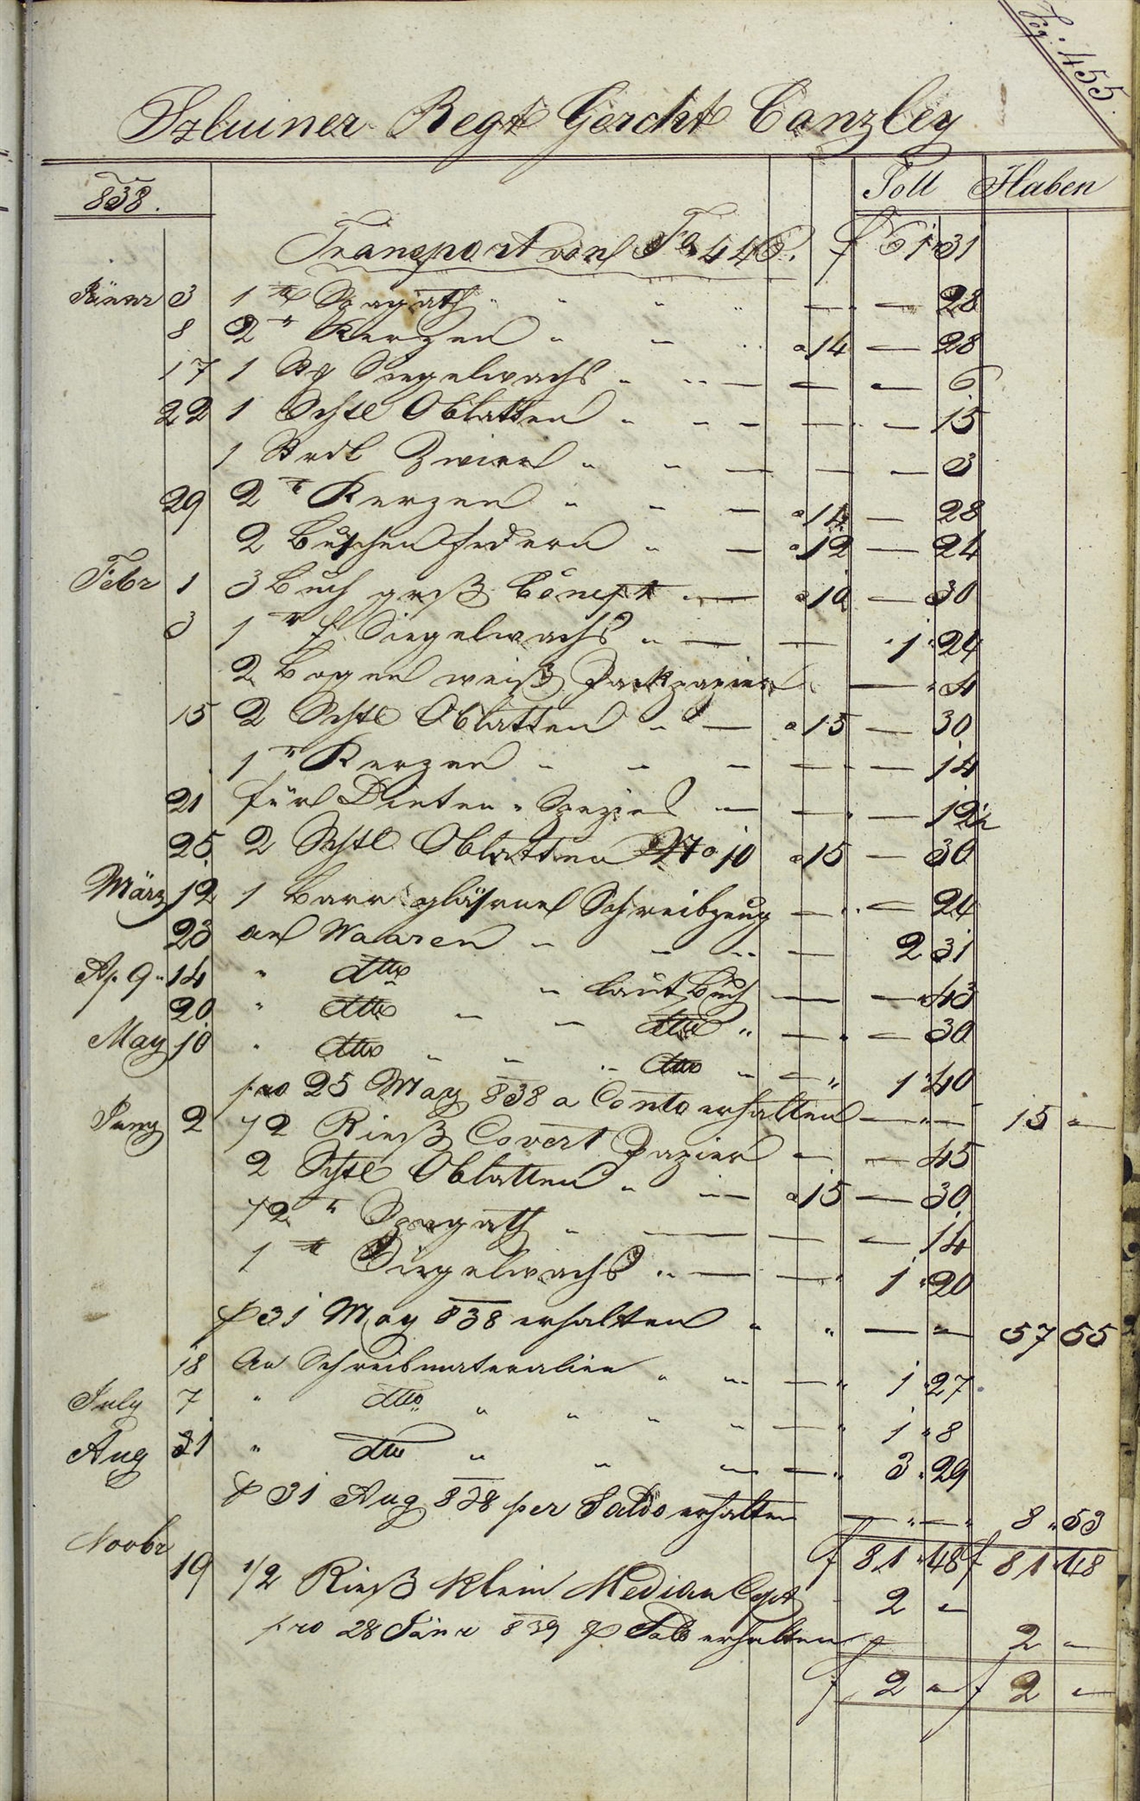 Fog. 455
Szluiner Regt Gercht Canzley
838.
Soll Haben
Transport von Fo 446. f 61 31
Jäner 3 1 ℔ Spagath " " " " — — 28
8 2 " Kerzen " — " a 14 — 28
17 1 Stg Siegelwachs " " — — — 6
22 1 Schtl Oblatten " - - — — — 15
1 Strdl Zwirn " - — — — 3
29 2 ℔ Kerzen " - — a 14 — 28
2 Buschen Federn " — a 12 — 24
Febr 1 3 Buch groß Concept " — a 10 — 30
3 1 ℔ f. Siegelwachs " — — 1 " 24
2 Bogen weiß Packpapier — " 4
15 2 Schtl Oblatten " — a 15 — 30
1 ℔ Kerzen - - — — — 14
21 für Dinten " Spezies — — — 12
25 2 Schtl Oblatten No 10 a 15 — 30
März 12 1 Paar gläserne Schreibzeug — — 24
23 an Waaren " - " — 2 31
Ap. 9 " 14 " dtto " laut Buch — — 43
20 " dtto — — dtto " — — 30
May 10 " dtto " " " dtto " — 1 " 40
pro 25 May 838 a Conto erhalten — " — 15 " —
Juny 2 ½ Rieß Covert Papier — — 45
2 Schtl Oblatten " " — a 15 — 30
½ " Spagath " — — — 14
1 ℔ Siegelwachs " — — 1 " 20
p 31 May 838 erhalten " " — " 57 55
18 An Schreibmaterialien " " — 1 " 27
July 7 " dtto " " " " — 1 " 8
Aug 31 " dtto " " " — 3 " 29
p 31 Aug 838 per Saldo erhalten — " — " 8 " 53
f 81 " 48 f 81 " 48
Novbr 19 1/2 Rieß Klein Median Cpt - 2 "
pro 28 Jäner 839 p Saldo erhalten — 2 —
f 2 " f 2 "